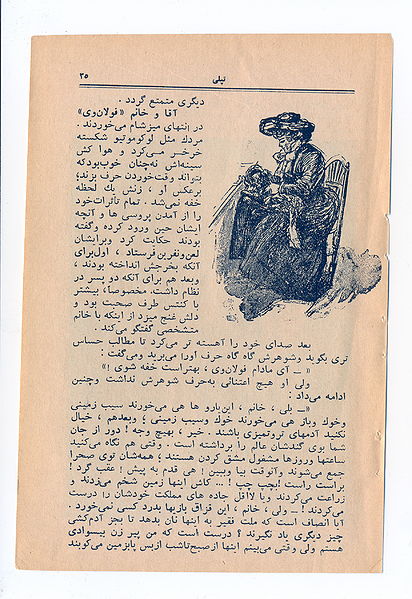 تپلی ۳۵
دیگری متمتع گردد.
آقا و خانم «فولان‌وی»
در انتهای میزشام می‌خوردند.
مردك مثل لوکوموتیو شکسته
خرخر می‌کرد و هوا کش
سینه‌اش نه‌چنان خوب‌بود‌که
بتواند وقت‌خوردن حرف بزند؛
برعکس او، زنش یك لحظه
خفه نمی‌شد. تمام تأثرات‌خود
را از آمدن پروسی ها و آنچه
ایشان حین ورود کرده و‌گفته
بودند حکایت کرد و‌برایشان
لعن‌ونفرین‌فرستاد، اول‌برای
آنکه بخرجش انداخته بودند،
وبعد هم برای آنکه دو پسر در
نظام داشت. مخصوصاً، بیشتر
با کنتس طرف صحبت بود و
دلش غنج میزد از اینکه با خانم
متشخصی گفتگو می‌کند.
بعد صدای خود را آهسته تر می‌کرد تا مطالب حساس
تری بگوید وشوهرش گاه گاه حرف اورا می‌برید ومی‌گفت:
«ــ آی مادام فولان‌وی، بهتراست خفه شوی!»
ولی او هیچ اعتنائی به‌حرف شوهرش نداشت وچنین
ادامه می‌داد:
«ــ بلی، خانم، این‌بارو ها هی می‌خورند سیب زمینی
وخوك وباز هی می‌خورند خوك وسیب زمینی؛ وبعدهم، خیال
نکنید آدمهای تروتمیزی باشند. خیر، بهیچ وجه! دور از جان
شما بوی گندشان عالم را برداشته است. وقتی هم نگاه می‌کنید
ساعتها وروزها مشغول مشق کردن هستند؛ همه‌شان توی صحرا
جمع می‌شوند وآنوقت بیا وببین! هی قدم به پیش! عقب گرد!
براست راست! بچپ چپ!... کاش اینها زمین شخم میزدند و
زراعت می‌کردند ویا لااقل جاده های مملکت خودشان را درست
می‌کردند! ــ ولی، خانم، این قزاق بازیها بدرد کسی نمی‌خورد.
آیا انصاف است که ملت فقیر به اینها نان بدهد تا بجز آدم‌کشی
چیز دیگری یاد نگیرند؟ درست است که من پیر زن بیسوادی
هستم ولی وقتی می‌بینم اینها ازصبح‌تاشب ازبس پابزمین می‌کوبند